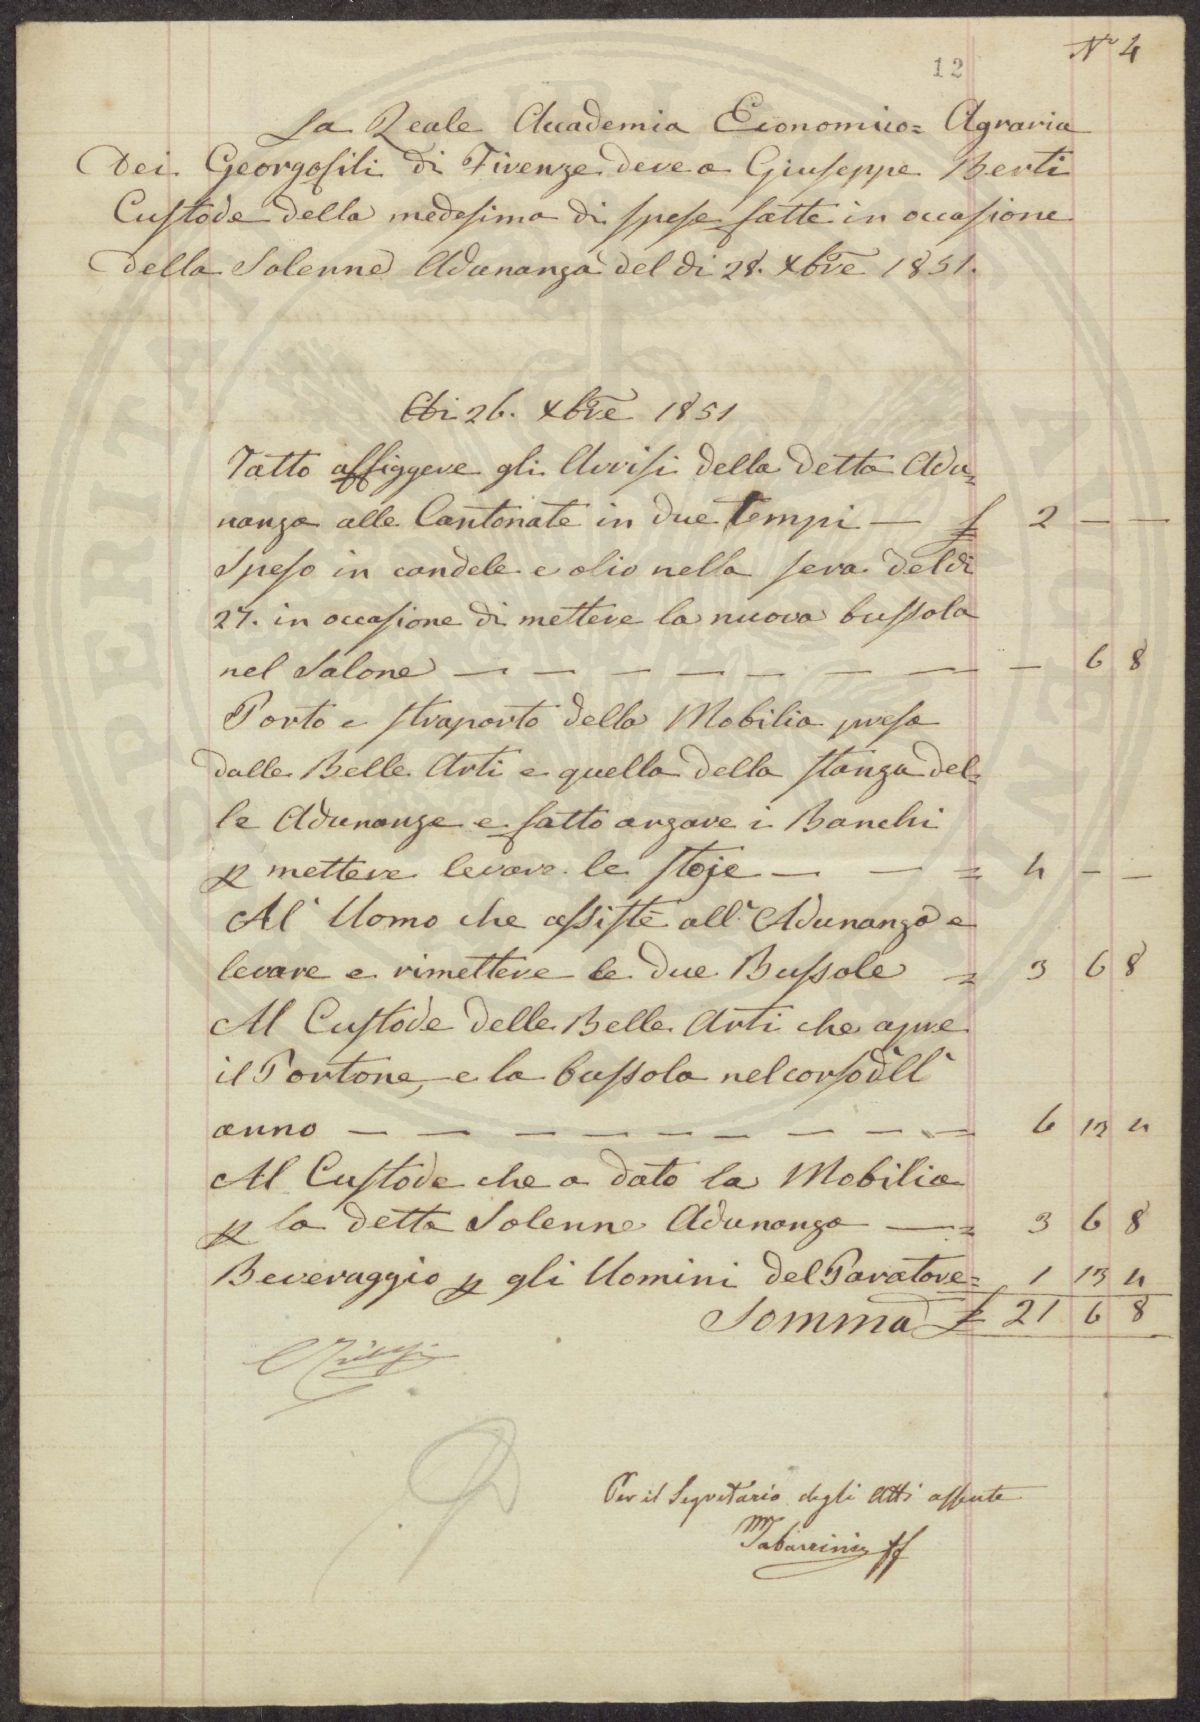 Nº 4
12
La Reale Accademia Economico= Agraria
Dei Georgofili di Firenze deve a Giuseppe Berti
Custode della medesima di spese fatte in occasione
della Solenne Adunanza del di 28. Xbre 1851.
Adi 26. Xbre 1851
Fatto affiggere gli Avvisi della detta Adu=
nanza alle Cantonate in due tempi — £ 2 — —
Speso in candele e olio nella sera del di
27. in occasione di mettere la nuova bussola
nel Salone — — — — — — — — 6 8
Porto e straporto della Mobilia presa
dalle Belle Arti e quella della stanza del=
le Adunanze e fatto arzare i Banchi
p mettere levare le stoje — — = 4 — —
Al' Uomo che assistè all' Adunanza e
levare e rimettere le due Bussole = 3 6 8
Al Custode delle Belle Arti che apre
il Portone, e la bussola nel corso dell'
anno — — — — — — — — — 6 13 4
Al Custode che a dato la Mobilia
p la detta Solenne Adunanza — = 3 6 8
Beveraggio p gli Uomini del Paratore= 1 13 4
Somma £ 21 6 8
Per il Segretario degli Atti assente
M Tabarrini ff